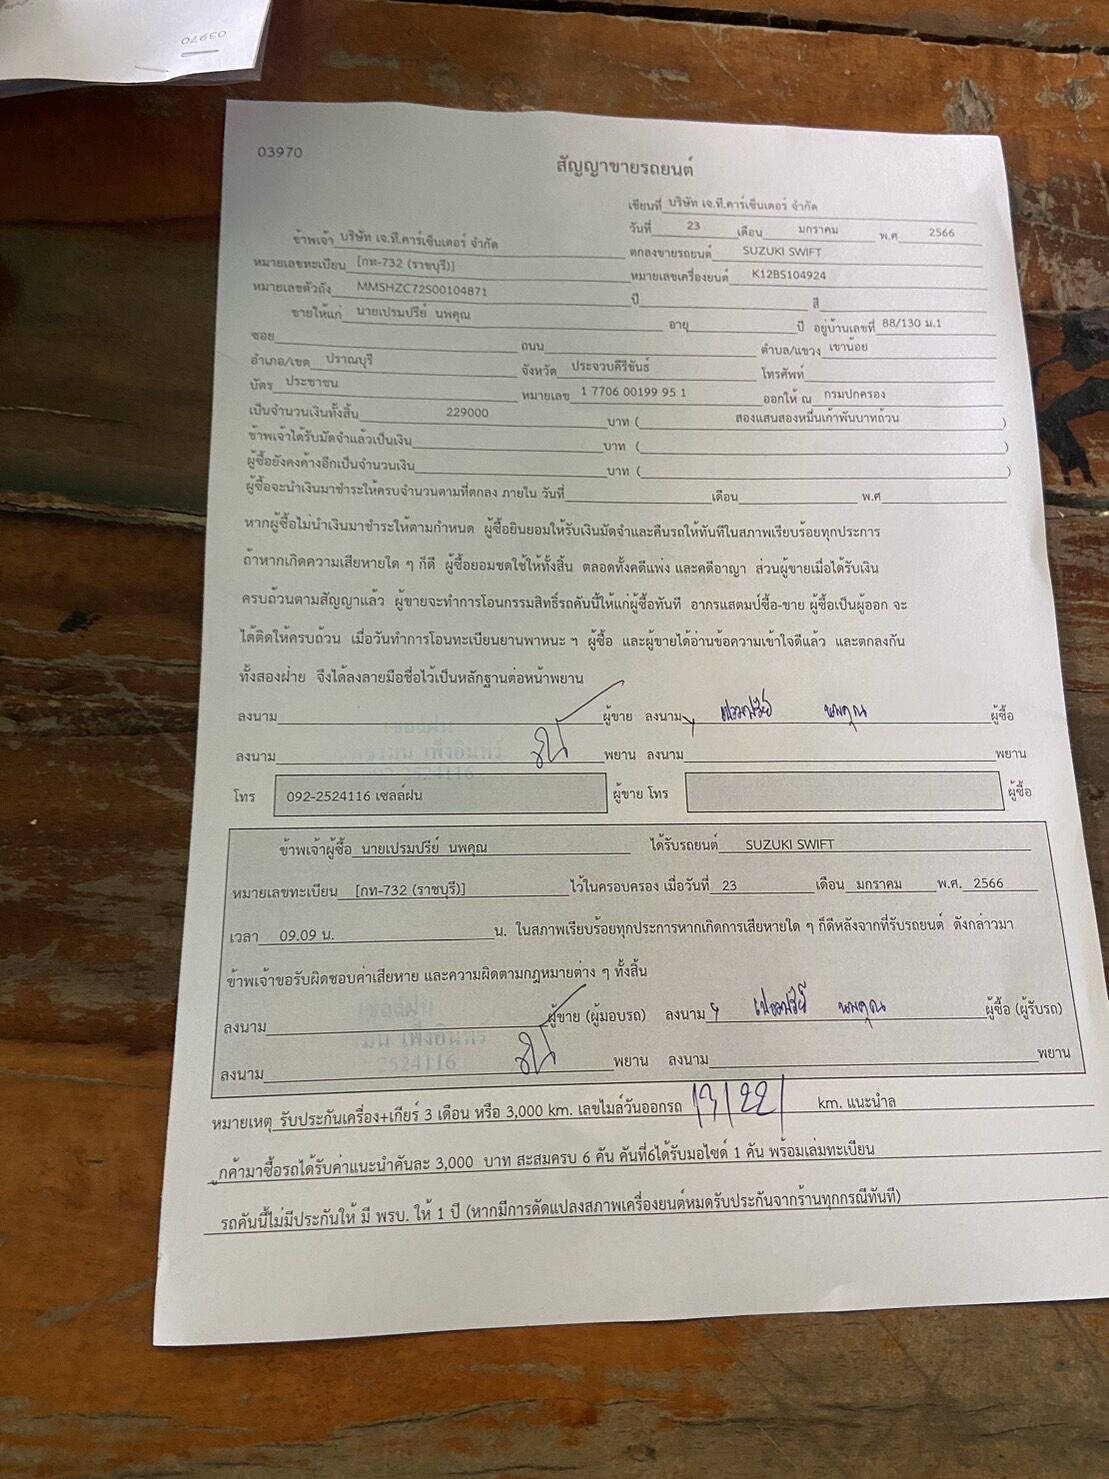 03970
03970
สัญญาขายรถยนต์
เขียนที่ บริษัท เจ.ที.คาร์เซ็นเตอร์ จำกัด
วันที่ 23 เดือน มกราคม พ.ศ 2566
ข้าพเจ้า บริษัท เจ.ที.คาร์เซ็นเตอร์ จำกัด ตกลงขายรถยนต์ SUZUKI SWIFT
หมายเลขทะเบียน [กท-732 (ราชบุรี)] หมายเลขเครื่องยนต์ K12BS104924
หมายเลขตัวถัง MMSHZC72S00104871 ปี สี
ขายให้แก่ นายเปรมปรีย์ นพคุณ อายุ ปี อยู่บ้านเลขที่ 88/130 ม.1
ซอย ถนน ตำบล/แขวง เขาน้อย
อำเภอ/เขต ปราณบุรี จังหวัด ประจวบคีรีขันธ์ โทรศัพท์
บัตร ประชาชน หมายเลข 1 7706 00199 95 1 ออกให้ ณ กรมปกครอง
เป็นจำนวนเงินทั้งสิ้น 229000 บาท ( สองแสนสองหมื่นเก้าพันบาทถ้วน )
ข้าพเจ้าได้รับมัดจำแล้วเป็นเงิน บาท ( )
ผู้ซื้อยังคงค้างอีกเป็นจำนวนเงิน บาท ( )
ผู้ซื้อจะนำเงินมาชำระให้ครบจำนวนตามที่ตกลง ภายใน วันที่ เดือน พ.ศ
หากผู้ซื้อไม่นำเงินมาชำระให้ตามกำหนด ผู้ซื้อยินยอมให้รับเงินมัดจำและคืนรถให้ทันทีในสภาพเรียบร้อยทุกประการ
ถ้าหากเกิดความเสียหายใด ๆ ก็ดี ผู้ซื้อยอมชดใช้ให้ทั้งสิ้น ตลอดทั้งคดีแพ่ง และคดีอาญา ส่วนผู้ขายเมื่อได้รับเงิน
ครบถ้วนตามสัญญาแล้ว ผู้ขายจะทำการโอนกรรมสิทธิ์รถคันนี้ให้แก่ผู้ซื้อทันที อากรแสตมป์ซื้อ-ขาย ผู้ซื้อเป็นผู้ออก จะ
ได้ติดให้ครบถ้วน เมื่อวันทำการโอนทะเบียนยานพาหนะ ฯ ผู้ซื้อ และผู้ขายได้อ่านข้อความเข้าใจดีแล้ว และตกลงกัน
ทั้งสองฝ่าย จึงได้ลงลายมือชื่อไว้เป็นหลักฐานต่อหน้าพยาน
ลงนาม ผู้ขาย ลงนาม เปรมปรีย์ นพคุณ ผู้ซื้อ
เซลล์ฝน
ลงนาม พยาน ลงนาม พยาน
092-2524116
โทร 092-2524116 เซลล์ฝน ผู้ขาย โทร ผู้ซื้อ
ข้าพเจ้าผู้ซื้อ นายเปรมปรีย์ นพคุณ ได้รับรถยนต์ SUZUKI SWIFT
หมายเลขทะเบียน [กท-732 (ราชบุรี)] ไว้ในครอบครอง เมื่อวันที่ 23 เดือน มกราคม พ.ศ. 2566
เวลา 09.09 น. น. ในสภาพเรียบร้อยทุกประการหากเกิดการเสียหายใด ๆ ก็ดีหลังจากที่รับรถยนต์ ดังกล่าวมา
ข้าพเจ้าขอรับผิดชอบค่าเสียหาย และความผิดตามกฎหมายต่าง ๆ ทั้งสิ้น
เซลล์ฝน
ลงนาม ผู้ขาย (ผู้มอบรถ) ลงนาม เปรมปรีย์ นพคุณ ผู้ซื้อ (ผู้รับรถ)
2524116
ลงนาม พยาน ลงนาม พยาน
หมายเหตุ รับประกันเครื่อง+เกียร์ 3 เดือน หรือ 3,000 km. เลขไมล์วันออกรถ km. แนะนำล
ูกค้ามาซื้อรถได้รับค่าแนะนำคันละ 3,000 บาท สะสมครบ 6 คัน คันที่6ได้รับมอไซด์ 1 คัน พร้อมเล่มทะเบียน
รถคันนี้ไม่มีประกันให้ มี พรบ. ให้ 1 ปี (หากมีการดัดแปลงสภาพเครื่องยนต์หมดรับประกันจากร้านทุกกรณีทันที)